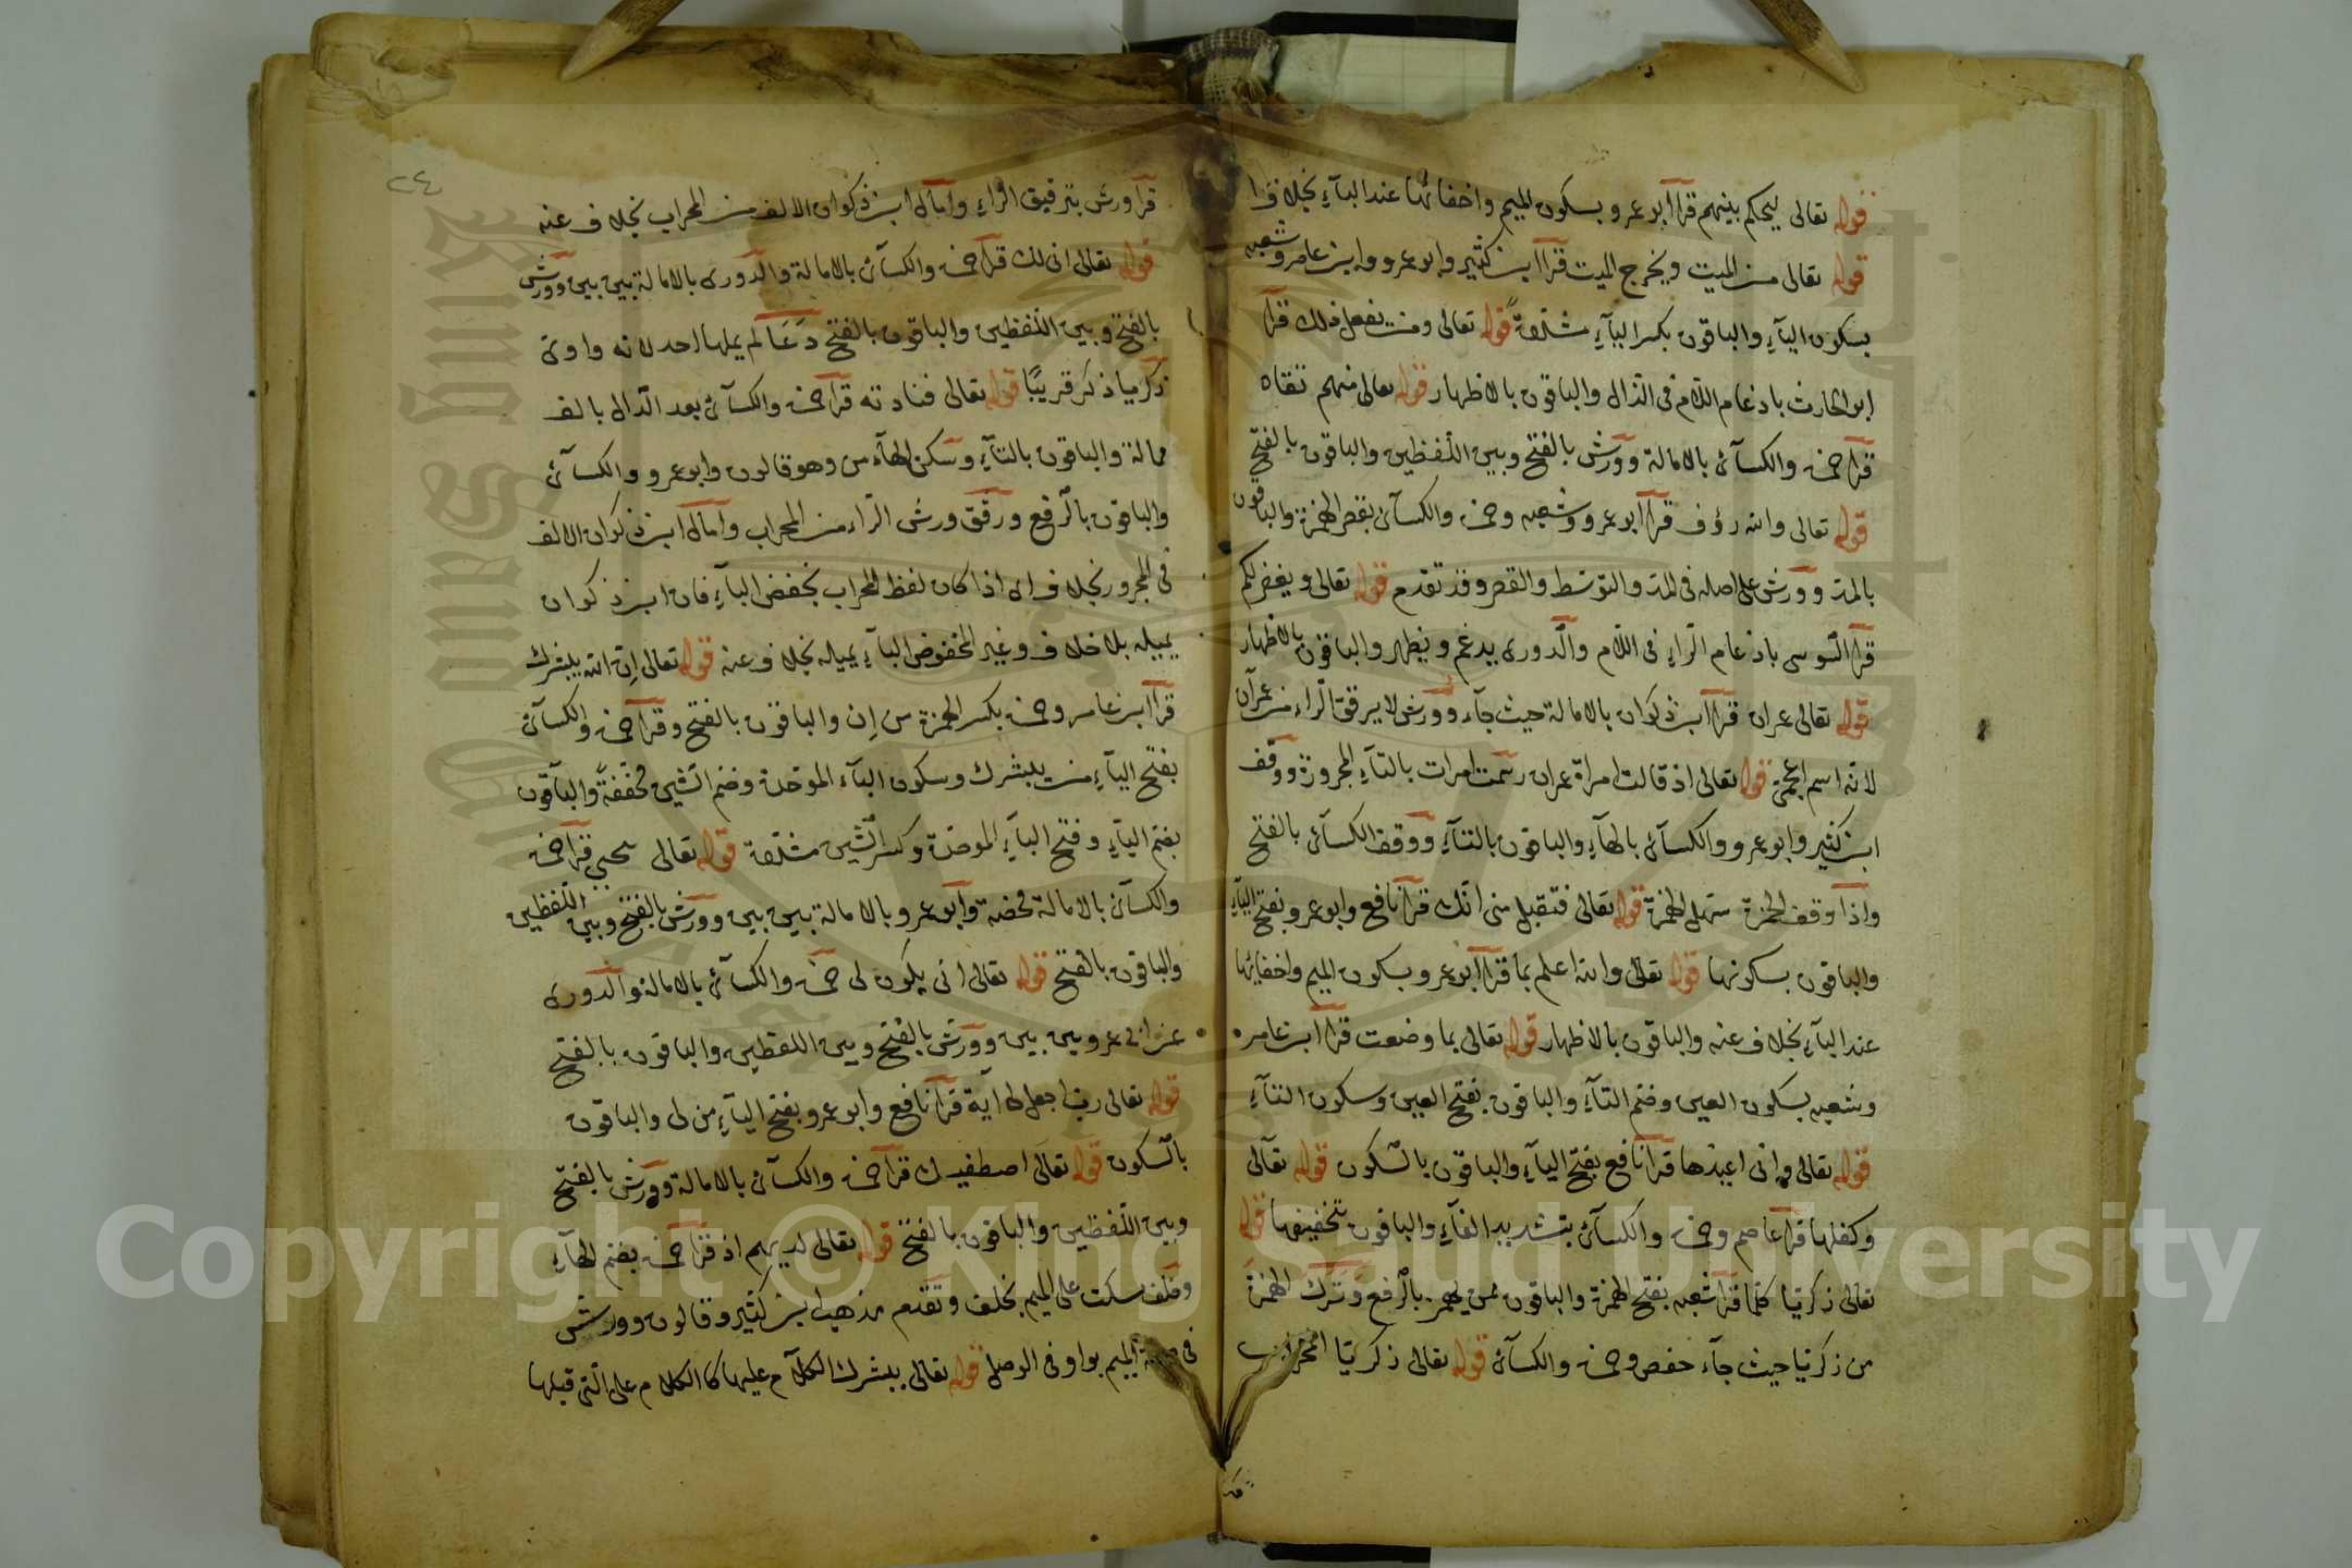 قوله تعالى ليحكم بينهم قرا ابو عمرو بسكون الميم واخفائها عند الباء بخلاف
قوله تعالى من الميت ويخرج الميت قرا ابن كثير وابو عمرو وابن عامر وشعبه
بسكون الياء والباقون بكسر الياء مشدّدة قوله تعالى ومن يفعل ذلك قرا
ابو الحارث بادغام اللام في الذال والباقون بالاظهار قوله تعالى منهم تقاه
قرا حمزة والكسائى بالامالة وورش بالفتح وبين اللفظين والباقون بالفتح
قوله تعالى والله رؤف قرا ابو عمرو وشعبه وحمزة والكسائى بقصر الهمزة والباقون
بالمد وورش على اصله فى المد والتوسط والقصر وقد تقدم قوله تعالى ويغفر لكم
قرا السوسى بادغام الراء فى اللام والدورى يدغم ويظهر والباقون بالاظهار
قوله تعالى عمران قرا ابن ذكوان بالامالة حيث جاء وورش لا يرقق الراء من عمران
لانه اسم اعجمى قوله تعالى اذ قالت امراة عمران رسمت امرات بالتاء المجرورة ووقف
ابن كثير وابو عمرو والكسائى بالهاء والباقون بالتاء ووقف الكسائى بالفتح
واذا وقف حمزة سهل الهمزة قوله تعالى فتقبل منى انك قرا نافع وابو عمرو بفتح الياء
والباقون بسكونها قوله تعالى والله اعلم بما قرا ابو عمرو بسكون الميم واخفائها
عند الباء بخلاف عنه والباقون بالاظهار قوله تعالى بما وضعت قرا ابن عامر
وشعبه بسكون العين وضم التاء والباقون بفتح العين وسكون التاء
قوله تعالى وانى اعيذها قرا نافع بفتح الياء والباقون بالسكون قوله تعالى
وكفلها قرا عاصم وحمزة والكسائى بتشديد الفاء والباقون بتخفيفها قوله
تعالى زكريا كلما قرا شعبه بفتح الهمزة والباقون ممن يهمز بالرفع وترك الهمزة
من زكريا حيث جاء حفص وحمزة والكسائى قوله تعالى زكريا المحراب
٢٤
قرا ورش بترقيق الراء وامال ابن ذكوان الالف من المحراب بخلاف عنه
قوله تعالى انى لك قرا حمزة والكسائى بالامالة والدورى بالامالة بين بين وورش
بالفتح وبين اللفظين والباقون بالفتح دعا لم يملها احد لانه واوى
ذكريا ذكر قريبًا قوله تعالى فنادته قرا حمزة والكسائى بعد الدال بالف
ممالة والباقون بالتاء وسكن الهاء من وهو قالون وابو عمرو والكسائى
والباقون بالرفع ورقق ورش الراء من المحراب وامال ابن ذكوان الالف
فى المجرور بخلاف اى اذا كان لفظ المحراب بخفض الباء فان ابن ذكوان
يميله بلا خلاف وغير المخفوض الباء يميله بخلاف عنه قوله تعالى إن الله يبشرك
قرا ابن عامر وحمزة بكسر الهمزة من إن والباقون بالفتح وقرا حمزة والكسائى
بفتح الياء من يبشرك وسكون الباء الموحدة وضم الشين مخففةً والباقون
بضم الياء وفتح الباء الموحدة وكسر الشين مشددة قوله تعالى يحيى قرا حمزة
والكسائى بالامالة محضة وابو عمرو بالامالة بين بين وورش بالفتح وبين اللفظين
والباقون بالفتح قوله تعالى انى يكون لى حمزة والكسائى بالامالة والدورى
عن ابى عمرو بين بين وورش بالفتح وبين اللفظين والباقون بالفتح
قوله تعالى رب اجعل لى آية قرا نافع وابو عمرو بفتح الياء من لى والباقون
بالسكون قوله تعالى اصطفيك قرا حمزة والكسائى بالامالة وورش بالفتح
وبين اللفظين والباقون بالفتح قوله تعالى لديهم اذ قرا حمزة بضم الهاء
وخلف سكت على الميم بخلف وتقدم مذهب ابن كثير وقالون وورش
فى الميم بواو فى الوصل قوله تعالى يبشرك الكلام عليها كالكلام على التى قبلها
Copyright © King Saud University